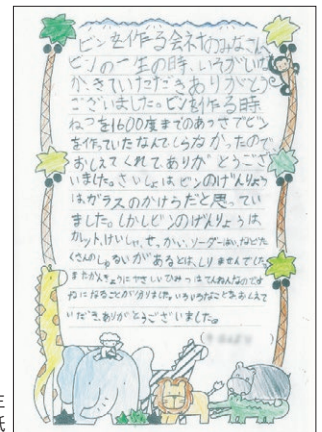 ビンを作る会社のみなさん
ビンの一生の時、いろがいな
かきていただきありがとう
ございました。ビンを作る時
ねつを1600度までのあつさでビン
を作っていたなんてしらなかったので
おしえてくれて、ありがとうござ
いました。さいしょは、ビンのげんりょう
は、ガラスのかけらだと思ってい
ました。しかしビンのげんりょうは、
カレット、けいしゃ、せっかい、ソーダーはい、などた
くさんのしゅるいがあるとは、しりませんでした。
またかんきょうにやさしいひみつはてんねんなのです
ねになることが分りました。いろいろなことをおしえて
いただき、ありがとうございました。
年
紙